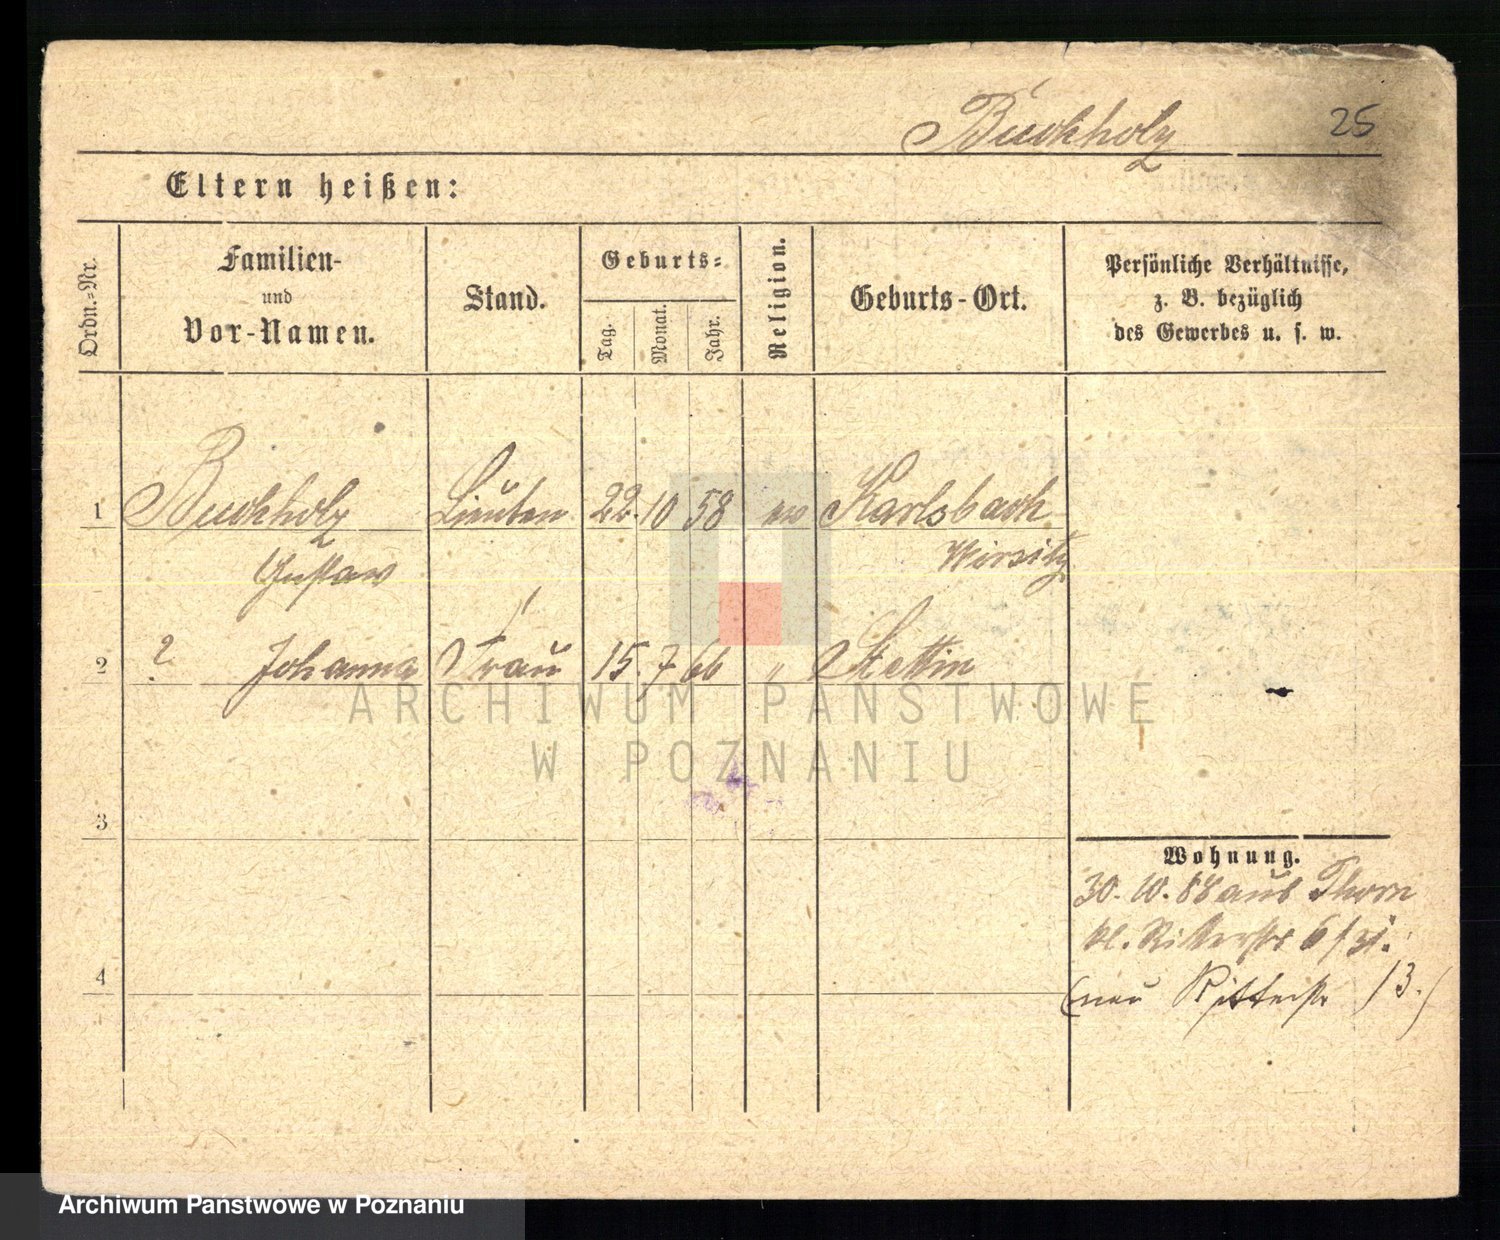 Buchholz 25
Eltern heißen:
Ordn.=Nr.
Familien-
und
Vor-Namen.
Stand.
Geburts=
Tag.
Monat.
Jahr.
Religion.
Geburts-Ort.
Persönliche Verhältnisse,
z. B. bezüglich
des Gewerbes u. s. w.
1 Buchholz Lieuten 22. 10 58 ev Karlsbach
Gustav Wirsitz
2 ? Johanna Frau 15. 7 66 " Stettin
ARCHIWUM PAŃSTWOWE
W POZNANIU
3
Wohnung.
30. 10. 88 aus Thorn
kl. Ritterstr 6
4
(neu Ritterstr 13.)
Archiwum Państwowe w Poznaniu